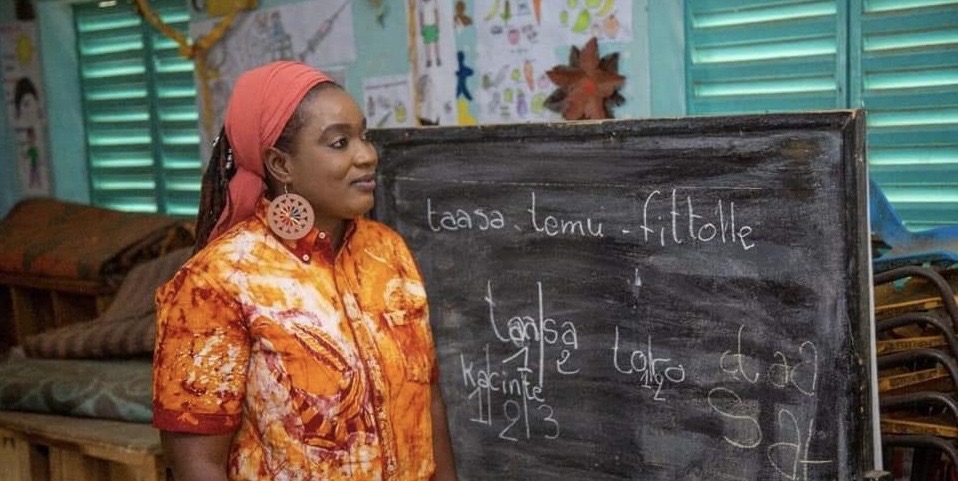 taasa - temu - fittolle
taasa
1 2
kacinte
1 2 3
toko
1 2